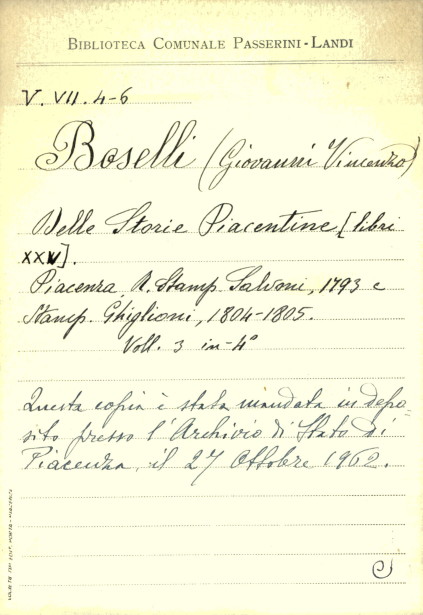 BIBLIOTECA COMUNALE PASSERINI-LANDI
V. VII. 4-6
Boselli (Giovanni Vincenzo)
Delle Storie Piacentine [libri
XXV].
Piacenza, R. Stamp. Salvoni, 1793 e
Stamp. Ghiglioni, 1804-1805.
Voll. 3 in-4°
Questa copia è stata mandata in depo-
sito presso l'Archivio di Stato di
Piacenza, il 27 Ottobre 1962.